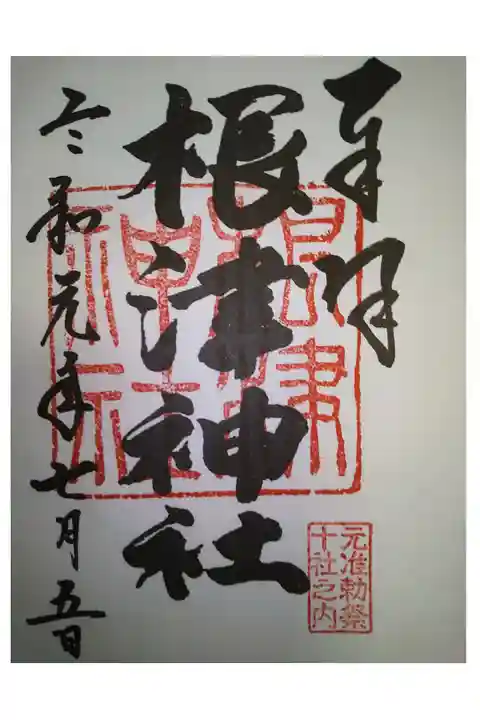 奉拝
根津神社
令和元年七月五日
根津
神社
元准勅祭
十社之内